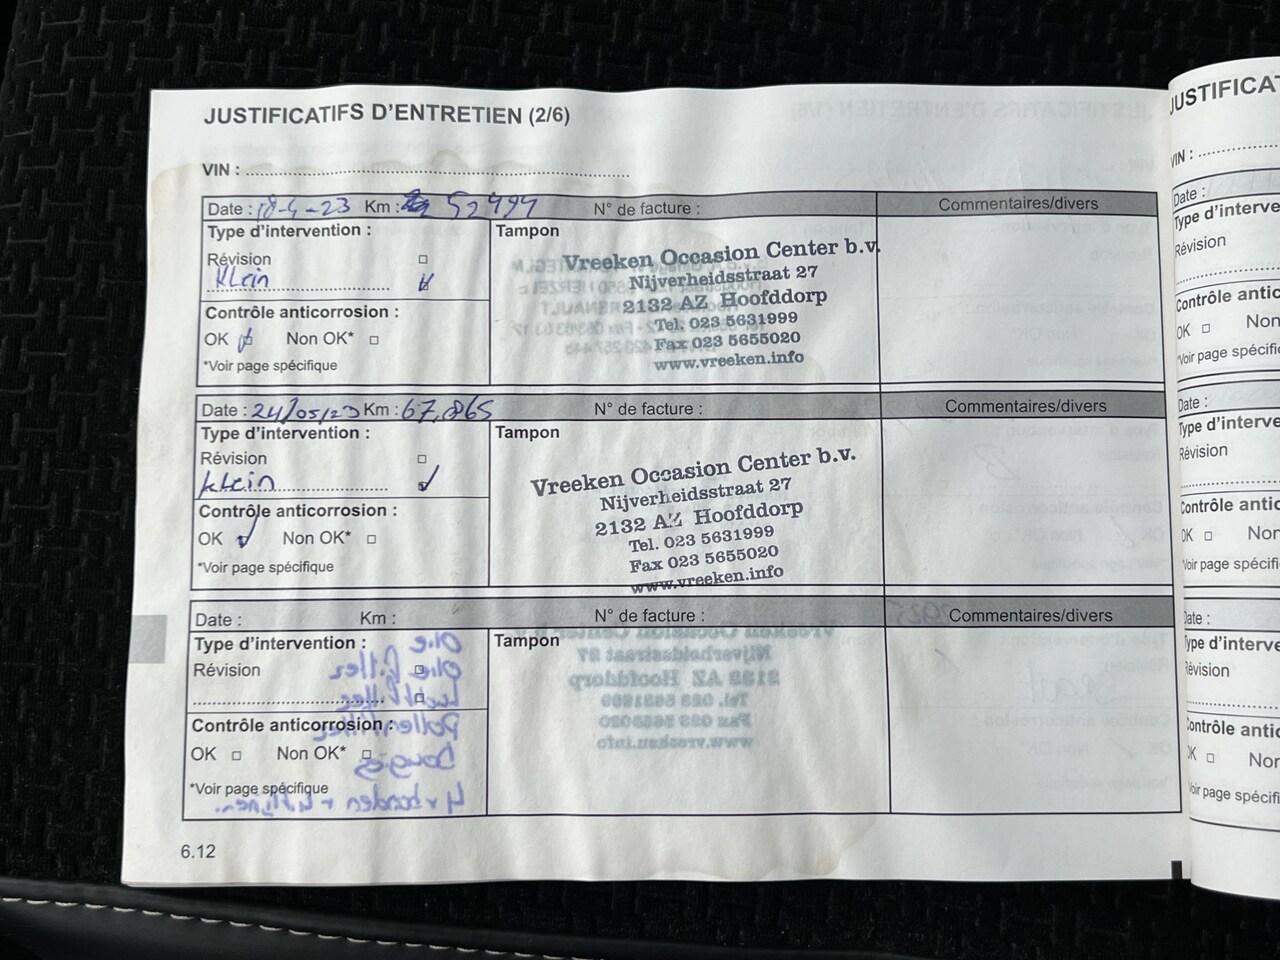 JUSTIFICATIFS D'ENTRETIEN (2/6)
VIN :
Date : 18-4-23 Km : 52499 N° de facture : Commentaires/divers
Type d'intervention :
Révision
Klein
Contrôle anticorrosion :
OK Non OK*
*Voir page spécifique
Tampon
Vreeken Occasion Center b.v.
Nijverheidsstraat 27
2132 AZ Hoofddorp
Tel. 023 5631999
Fax 023 5655020
www.vreeken.info
Date : 24/05/23 Km : 67.865 N° de facture : Commentaires/divers
Type d'intervention :
Révision
Klein
Contrôle anticorrosion :
OK Non OK*
*Voir page spécifique
Tampon
Vreeken Occasion Center b.v.
Nijverheidsstraat 27
2132 AZ Hoofddorp
Tel. 023 5631999
Fax 023 5655020
www.vreeken.info
Date : Km : N° de facture : Commentaires/divers
Type d'intervention :
Révision
Contrôle anticorrosion :
OK Non OK*
*Voir page spécifique
Tampon
6.12
JUSTIFICAT
VIN :
Date :
Type d'interve
Révision
Contrôle antic
OK Non
*Voir page spécifi
Date :
Type d'interve
Révision
Contrôle antic
OK Non
*Voir page spécifi
Date :
Type d'interve
Révision
Contrôle antic
OK Non
*Voir page spécifi